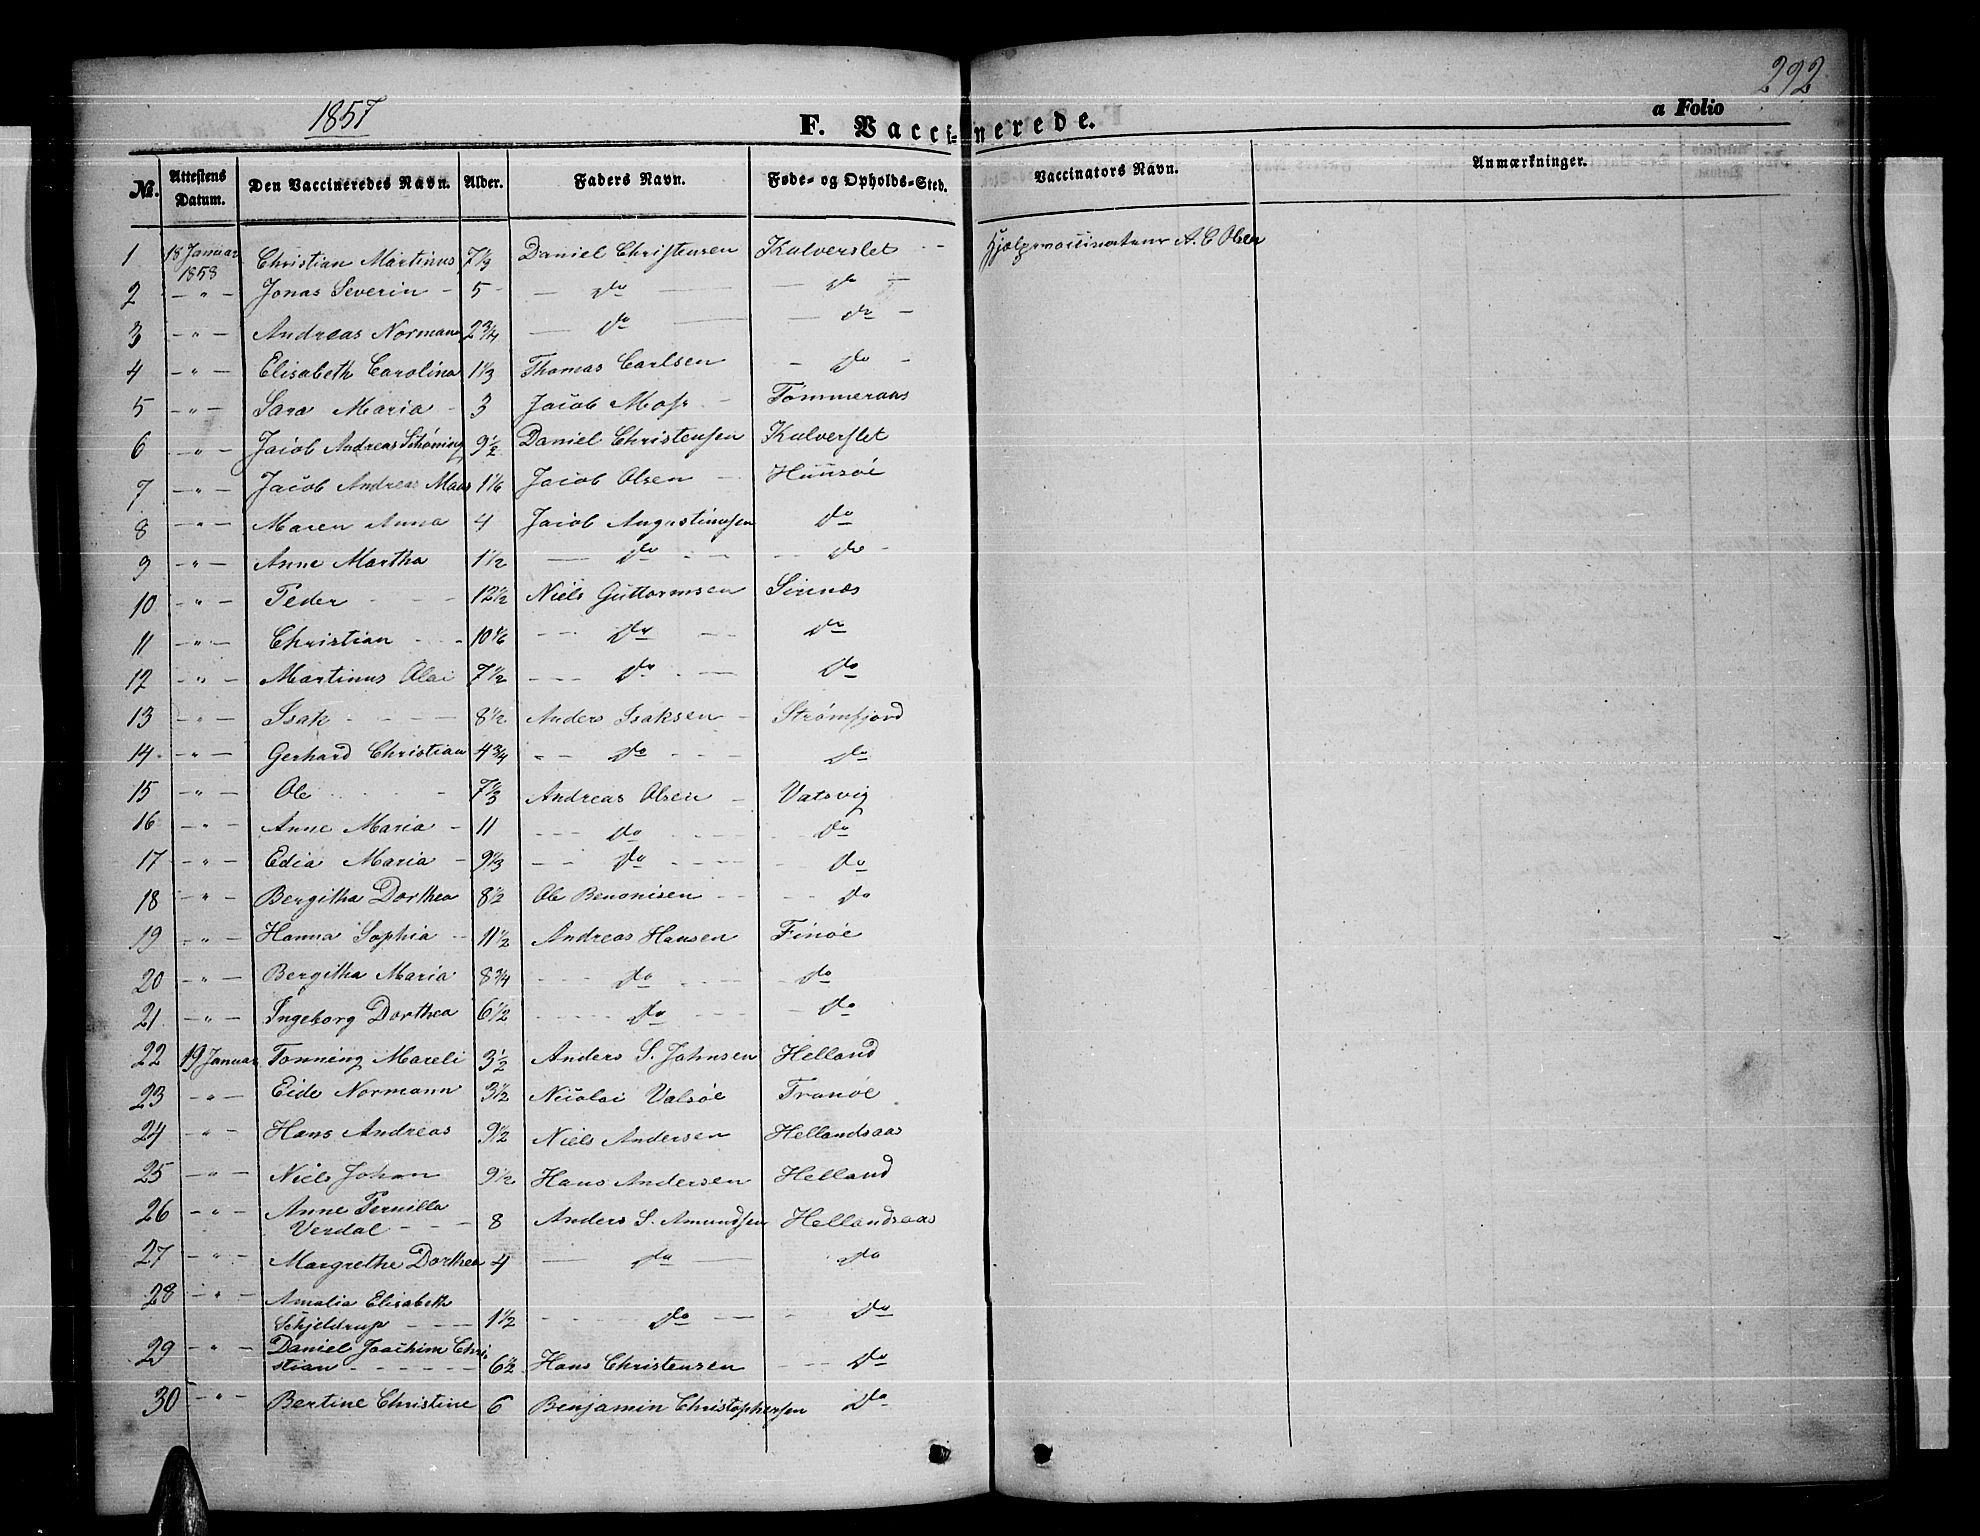 292
1857
F. Vaccinerede.
a Folio
Nr. Attestens Datum. Den Vaccineredes Navn. Alder. Faders Navn. Føde- og Opholds-Sted. Vaccinators Navn. Anmærkninger.
1 18 Januar 1858 Christian Martinus 7 1/3 Daniel Christensen Kalverslet Hjælpevaccinateur A. C. Olsen
2 - " - Jonas Severin - 5 - Do Do
3 - " - Andreas Normann 2 3/4 Do Do
4 - " - Elisabeth Carolina 1 1/3 Thomas Carlsen Do
5 - " - Sara Maria - 3 Jacob Mosr Tømmeraas
6 - " - Jacob Andreas Schøning 9 1/2 Daniel Christensen Kalverslet
7 - " - Jacob Andreas Maas 1 1/6 Jacob Olsen Huusøe
8 - " - Maren Anna 4 Jacob Augustinusen Do
9 - " - Anne Martha 1 1/2 Do Do
10 - " - Peder 12 1/2 Niels Guttormsen
11 - " - Christian 10 1/6 Do Do
12 - " - Martinus Olai 7 1/2 Do Do
13 - " - Isak 8 1/2 Anders Isaksen Strømfjord
14 - " - Gerhard Christian 4 3/4 Do Do
15 - " - Ole 7 2/3 Andreas Olsen Vatsvig
16 - " - Anne Maria - 11 Do Do
17 - " - Edia Maria - 9 1/3 Do Do
18 - " - Bergitha Dorthea 8 1/2 Ole Benonisen Do
19 - " - Hanna Sophia 11 1/2 Andreas Hansen Finøe
20 - " - Bergitha Maria 8 3/4 Do Do
21 - " - Ingeborg Dorthea 6 1/2 Do Do
22 19 Januar Tonning Mareli 3 1/2 Anders S. Johnsen Helland
23 - " - Eide Normann 3 1/2 Nicolai Valsøe Tranøe
24 - " - Hans Andreas 9 1/2 Niels Andersen Hellandsaas
25 - " - Niels Johan 9 1/2 Hans Andersen Helland
26 - " - Anne Pernilla
Verdal - - - 8 Anders S. Amundsen Hellandsaas
27 - " - Margrethe Dorthea 4 Do Do
28 - " - Amalia Elisabeth
Schjeldrup - - - 1 1/2 Do Do
29 - " - Daniel Joachim Chri-
stian - - - 6 1/2 Hans Christensen Do
30 - " - Bertine Christine 6 Benjamin Christophersen Do